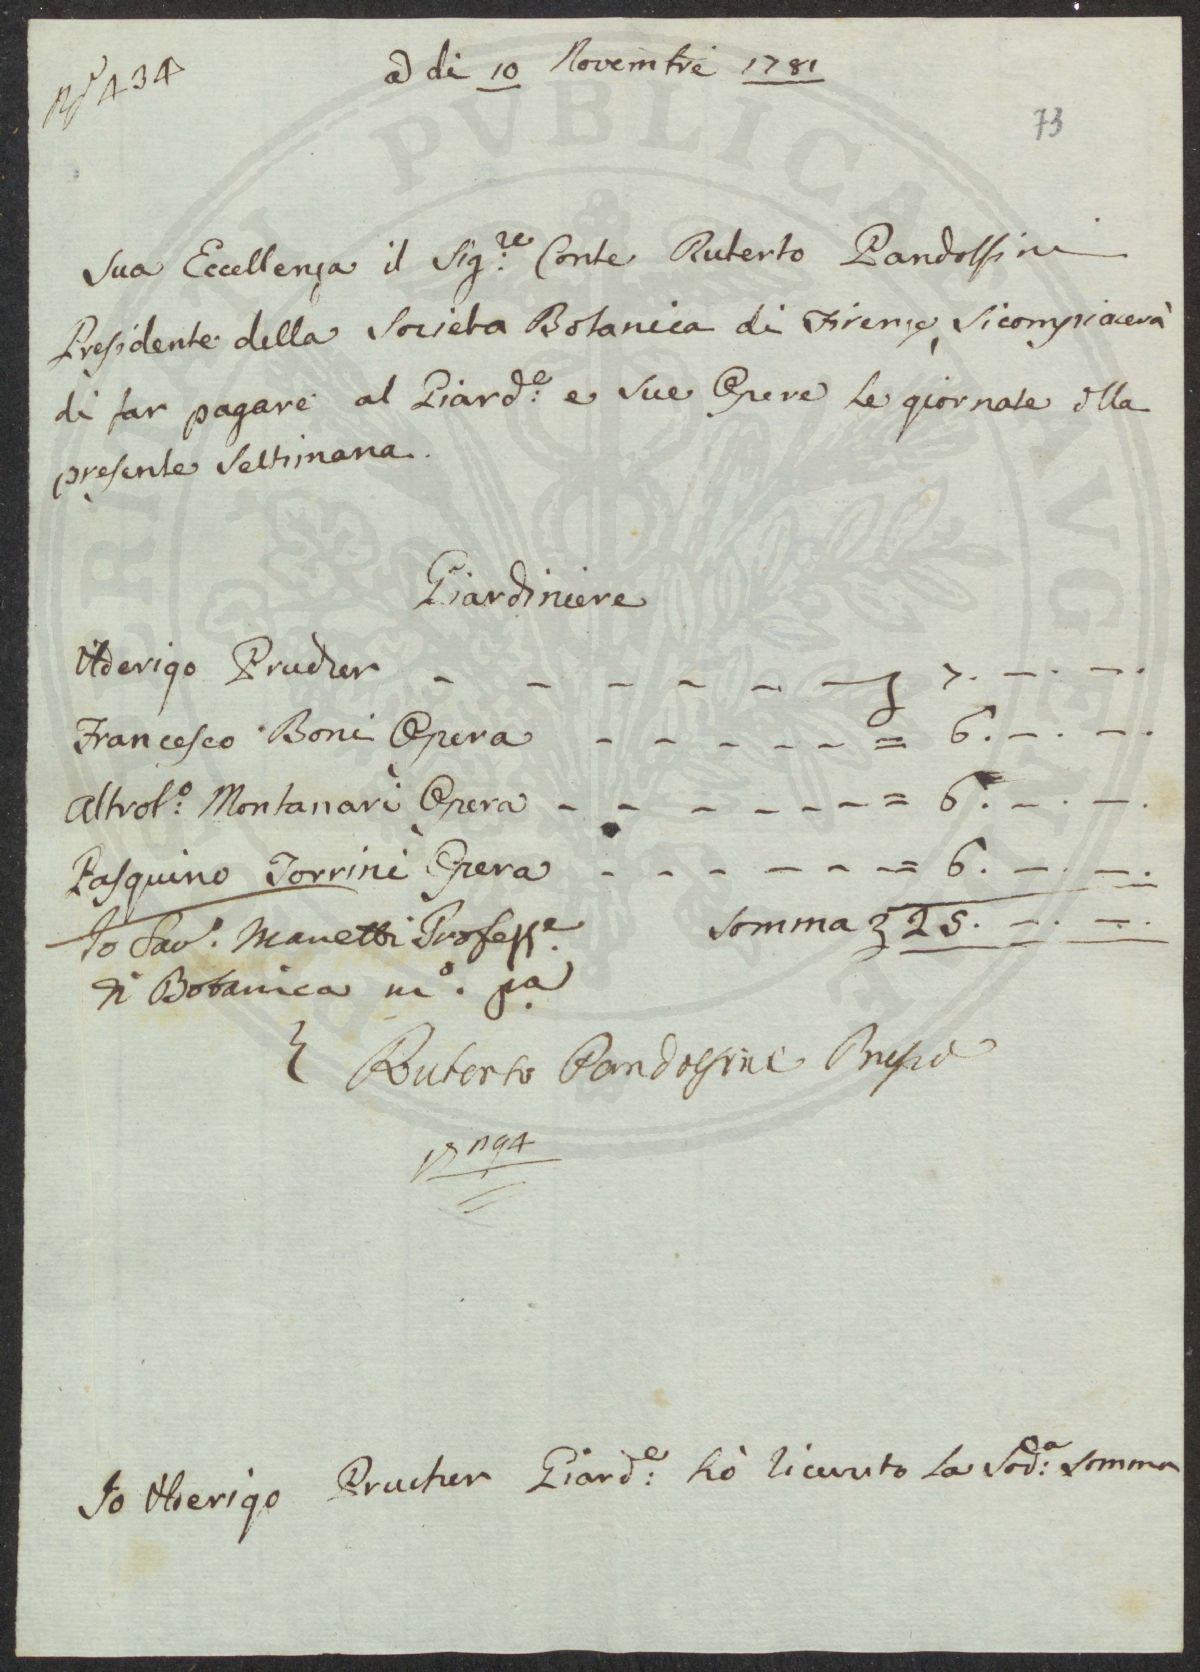 N.° 434
a di 10 Novembre 1781
73
Sua Eccellenza il Sig:re Conte Ruberto Pandolfini
Presidente della Società Botanica di Firenze, si compiacerà
di far pagare al Giard:e e sue Opere le giornate dlla
presente Settimana.
Giardiniere
Uderigo Prucher - - - - - - £ 7. -. -.
Francesco Boni Opera - - - - - = 6. -. -.
Altrol:o Montanari Opera - - - - - - = 6. -. -.
Pasquino Torrini Opera - - - - - - = 6. -. -.
Somma £ 25. -. -.
Io Sav.o Manetti Profess:e
di Botanica m.o p.a
Ruberto Pandolfini Preside
Io Uderigo Prucher Giard:e hò ricevuto la Sod:a Somma
PUBLICAE